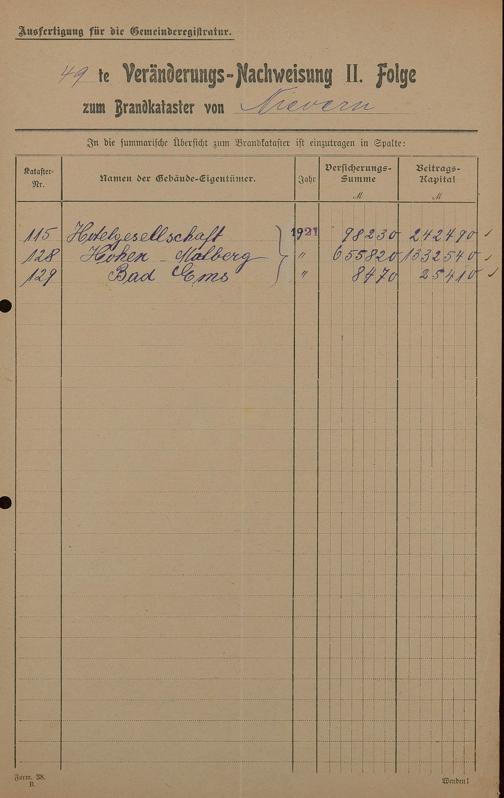 Ausfertigung für die Gemeinderegistratur.
49 te Veränderungs-Nachweisung II. Folge
zum Brandkataster von Nievern
In die summarische Übersicht zum Brandkataster ist einzutragen in Spalte:
Kataster-Nr. Namen der Gebäude-Eigentümer. Jahr Versicherungs-Summe M Beitrags-Kapital M
115 Hotelgesellschaft 1921 98230 242490
128 Hohen-Malberg " 655820 1332540
129 Bad Ems " 8470 25410
Form. 38.
B.
Wenden!